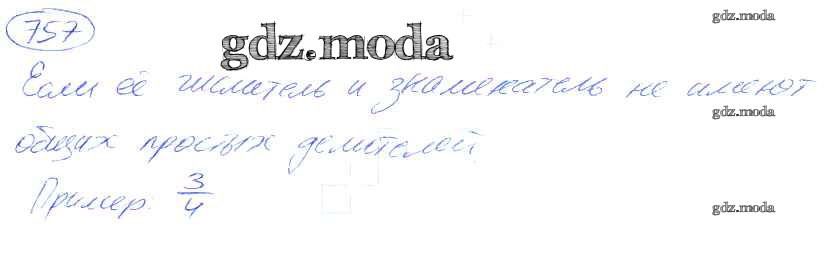 757
gdz.moda
gdz.moda
Если её числитель и знаменатель не имеют
gdz.moda
общих простых делителей
Пример: 3/4
gdz.moda